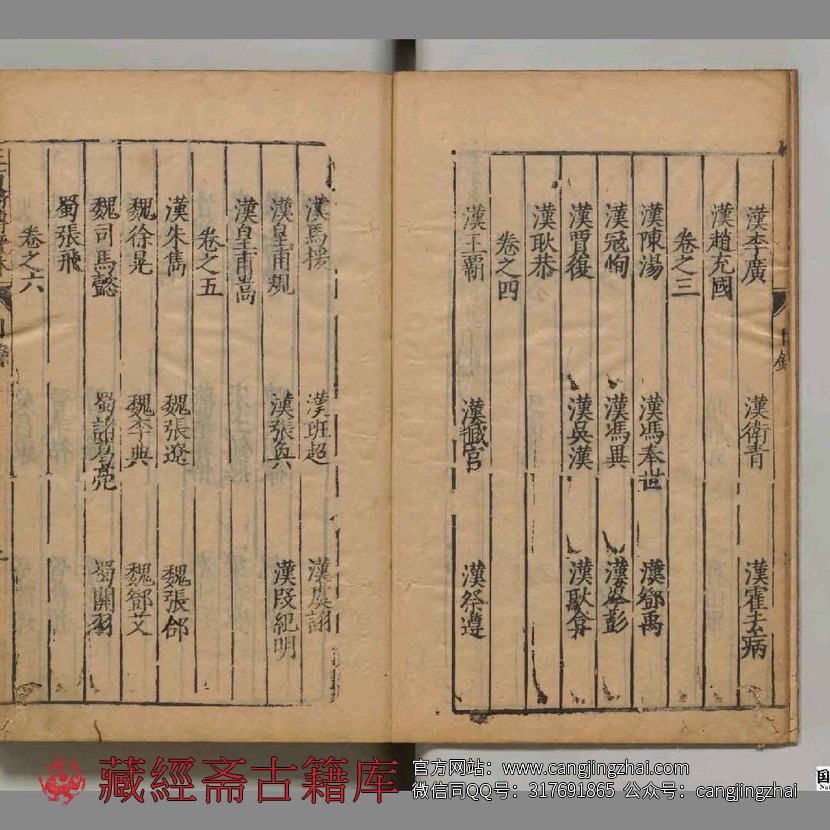 漢李廣 漢衛青 漢霍去病
漢趙充國
卷之三
漢陳湯 漢馮奉世 漢鄧禹
漢冦恂 漢馮異 漢岑彭
漢賈復 漢吳漢 漢耿弇
漢耿恭
卷之四
漢王霸 漢臧宮 漢祭遵
目錄
漢馬援 漢班超 漢虞詡
漢皇甫規 漢張奐 漢段紀明
漢皇甫嵩
卷之五
漢朱雋 魏張遼 魏張郃
魏徐晃 魏李典 魏鄧艾
魏司馬懿 蜀諸葛亮 蜀關羽
蜀張飛
卷之六
目錄
藏經斋古籍库
官方网站：www.cangjingzhai.com
微信同QQ号：317691865 公众号：cangjingzhai
国
Nat